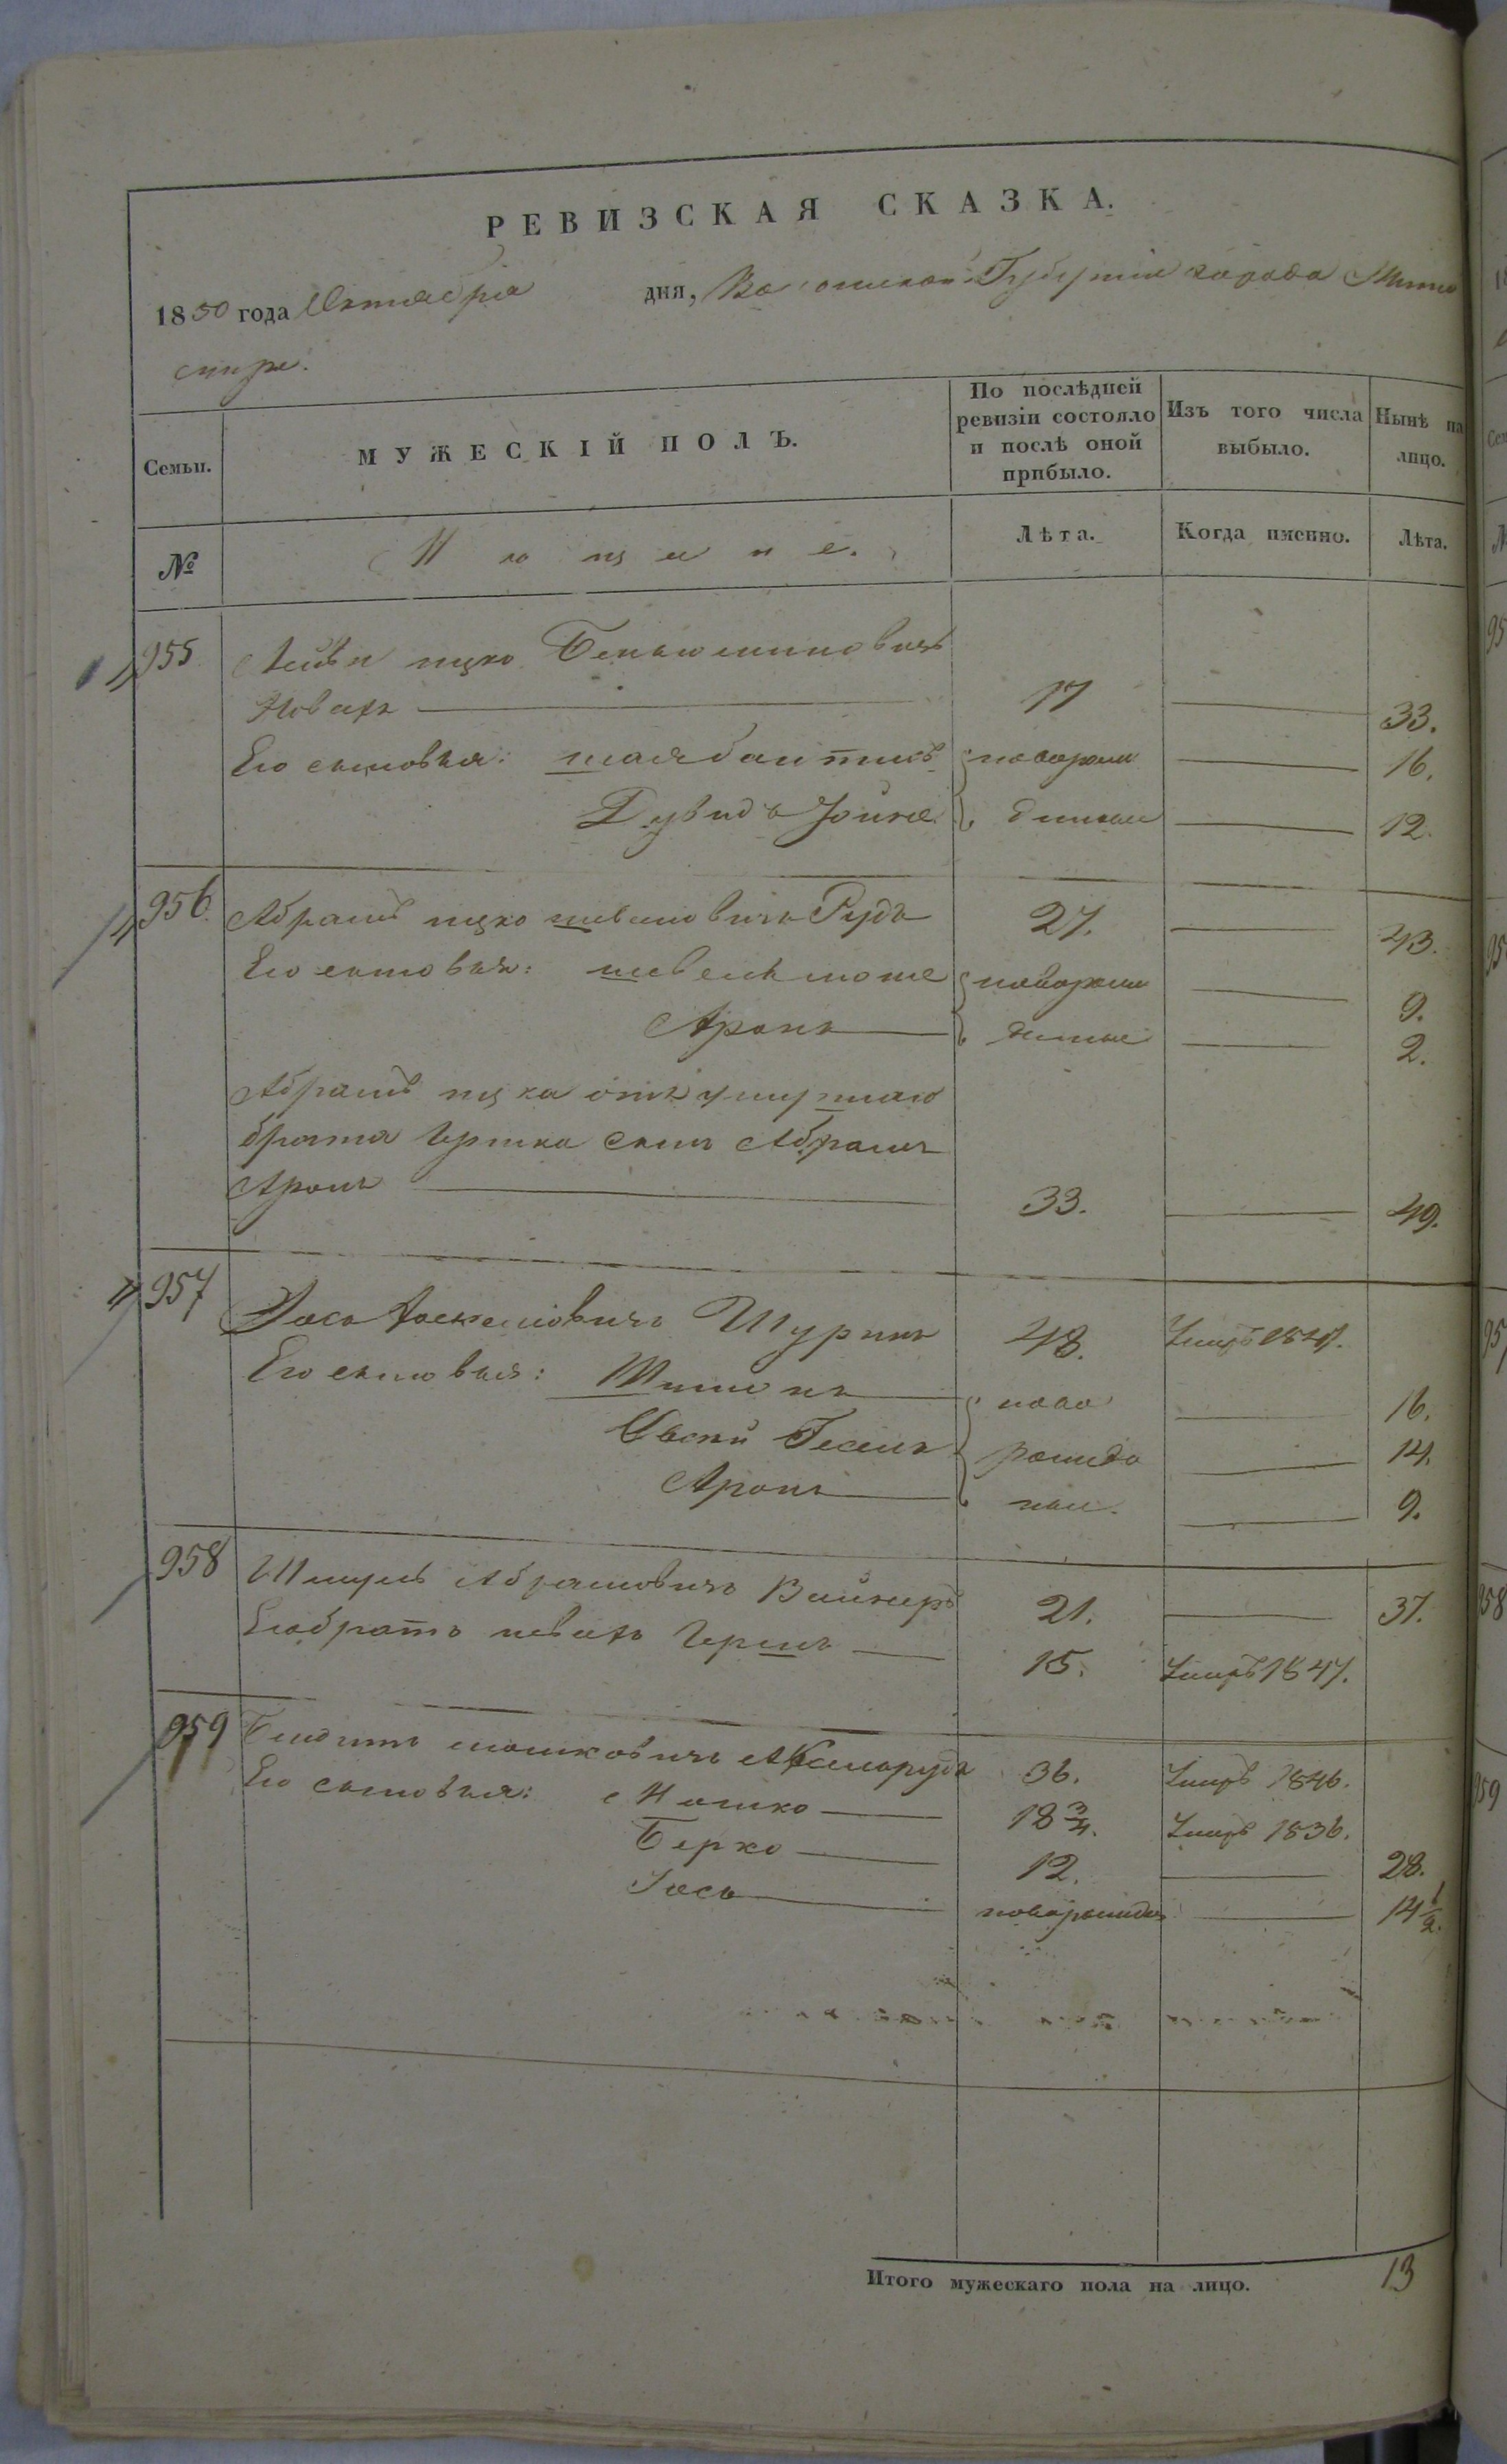 РЕВИЗСКАЯ СКАЗКА.
1850 года Октября дня, Волынской Губерніи города
Семьи. МУЖЕСКІЙ ПОЛЪ. По послѣдней ревизіи состояло и послѣ оной прибыло. Изъ того числа выбыло. Нынѣ на лицо.
№ Мещане. Лѣта. Когда именно. Лѣта.
955 Лейба ицко Беньюминовичъ
Новакъ 17 33.
Его сыновья: новорож 16.
Дувидъ Іойна денные 12.
956. Абрамъ ицко шевелювичъ Рудъ 27. 43.
Его сыновья: шевель моше новорож 9.
Аронъ денные 2.
Абрамъ ицка отъ умершаго
брата Гершка сынъ Абрамъ
Аронъ 33. 49.
957 Іось Иоскелиовичъ Шуринъ 48. Умеръ 1847.
Его сыновья: Шимонъ ново 16.
Овсѣй Гесель рожде 14.
Аронъ ные. 9.
958 Шмуль Абрамовичъ Вайнеръ 21. 37.
Его братъ Гершъ 15. Умеръ 1847.
959 мошковичъ 36. Умеръ 1846.
Его сыновья: Мошко 18 3/4. Умеръ 1836.
Берко 12. 28.
Іось новорожден 14 1/2.
Итого мужескаго пола на лицо. 13